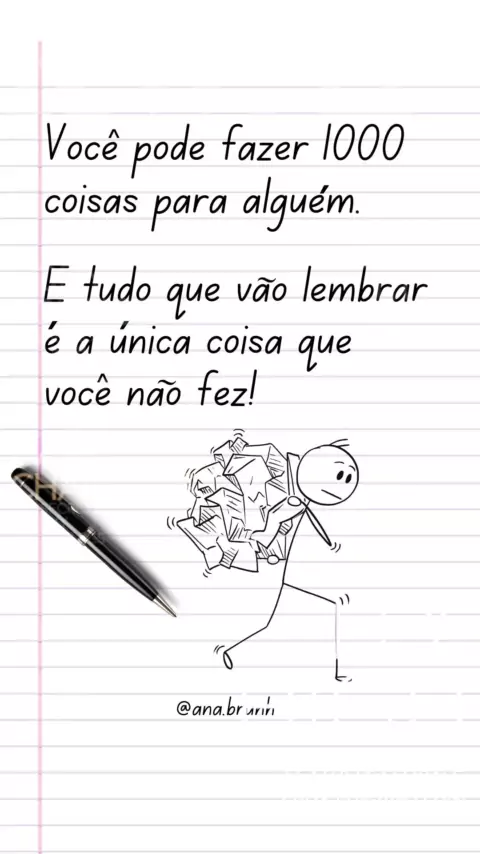 Você pode fazer 1000
coisas para alguém.
E tudo que vão lembrar
é a única coisa que
você não fez!